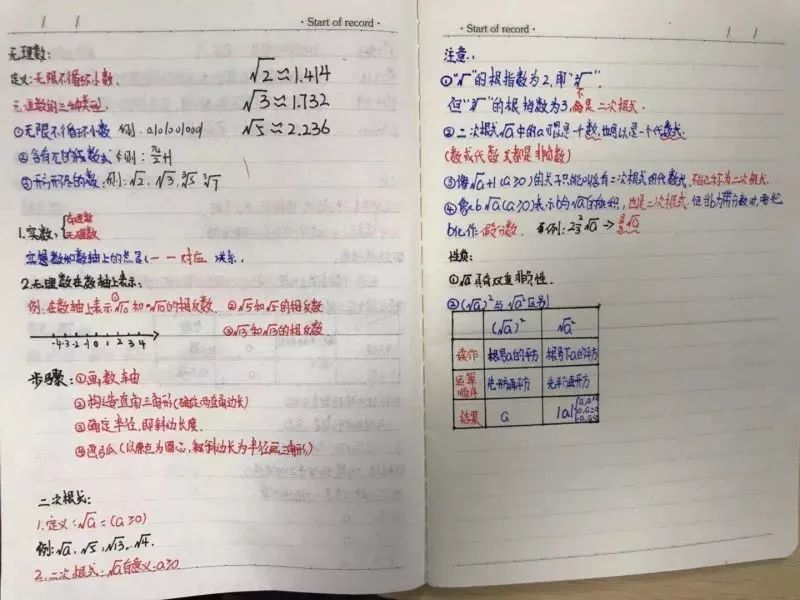 Start of record
无理数:
定义:无限不循环小数.
√2≈1.414
无理数的三种类型.
√3≈1.732
①无限不循环小数 例:
√5≈2.236
②含有π的
③ 的数:例:√2、√3、³√5 ³√7
1.实数:
有理数
无理数
数轴上的点是(一一对应)关系.
2.无理数在数轴上表示:
例:在数轴上表示①√10和-√10的相反数. ②√5和√5的相反数
③√13和√13的相反数
-4 -3 -2 -1 0 1 2 3 4
步骤:①画数轴
②构造直角三角形(确定两直角边长)
③确定半径,即斜边长度.
④画弧(以原点为圆心,
二次根式:
1.定义:√a (a≥0)
例:√a、√5、√13、√4.
2.二次根式:√a有意义:a≥0
Start of record
注意:
①“√”的根指数为2,即“²√”.
但“³√”的根指数为3, 是二次根式.
②二次根式√a中的a可以是一个数,也可以是一个代数式.
(数或代数式都是非负数)
③像√a+1(a≥0)的式子只能叫含有二次根式的代数式,不能称为二次根式.
④像b√a(a≥0)表示b与√a的乘积,也是二次根式.但当b为带分数时,要把
b化作假分数.
性质:
①√a具有双重非负性.
②(√a)²与√a²区别
(√a)² √a²
读作 根号a的平方 根号下a的平方
运算顺序 先开方再平方 先平方再开方
结果 a |a|